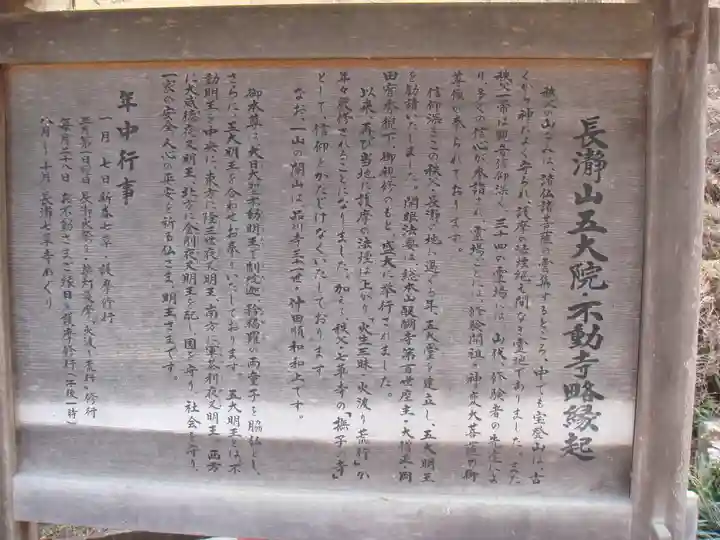 長瀞山五大院・不動寺略縁起
秩父の山なみは、諸仏諸菩薩の雲集するところ、中でも宝登山は、古
くから神たいよく守られ、護摩の煙煙絶え間なき霊地でありました。また
秩父一帯は観音信仰深く、三十四の霊場には、山伏、修験者の先達によ
り、多くの信心が参詣され、霊場ごとには、修験開祖・神変大菩薩の御
尊像が奉られております。
信仰深きこの秩父・長瀞の地に過ぐる年、五大堂を建立し、五大明王
を勧請いたしました。開眼法要は、総本山醍醐寺第百世座主・大僧正・岡
田宥秀猊下、御親修のもと、盛大に挙行されました。
以来、再び当地に護摩の法煙は上がり、火生三昧「火渡り荒行」が
年々厳修されることになりました。加えて、秩父・七草寺の「撫子の寺」
として、信仰とかたどけなくいたしております
なお、一山の開山は、品川寺三一世・仲田順和和上です。
御本尊は、大日大聖不動明王と制吒迦・矜羯羅の両童子を脇仏とし、
さらに、五大明王を合わせお奉りいたしております。五大明王とは、不
動明王を中央に、東方に降三世夜叉明王、南方に軍荼利夜叉明王、西方
に大威徳夜叉明王、北方に金剛夜叉明王を配し、国を守り、社会を守り、
一家の安全、人心の平安を祈る仏さま、明王さまです。
年中行事
一月七日 新春七草・護摩修行
三月第一日曜日 長瀞火祭り・柴灯護摩。火渡り荒行・修行
毎月二十八日 お不動さまご縁日・護摩修行（午後一時）
八月〜十月 長瀞七草寺めぐり